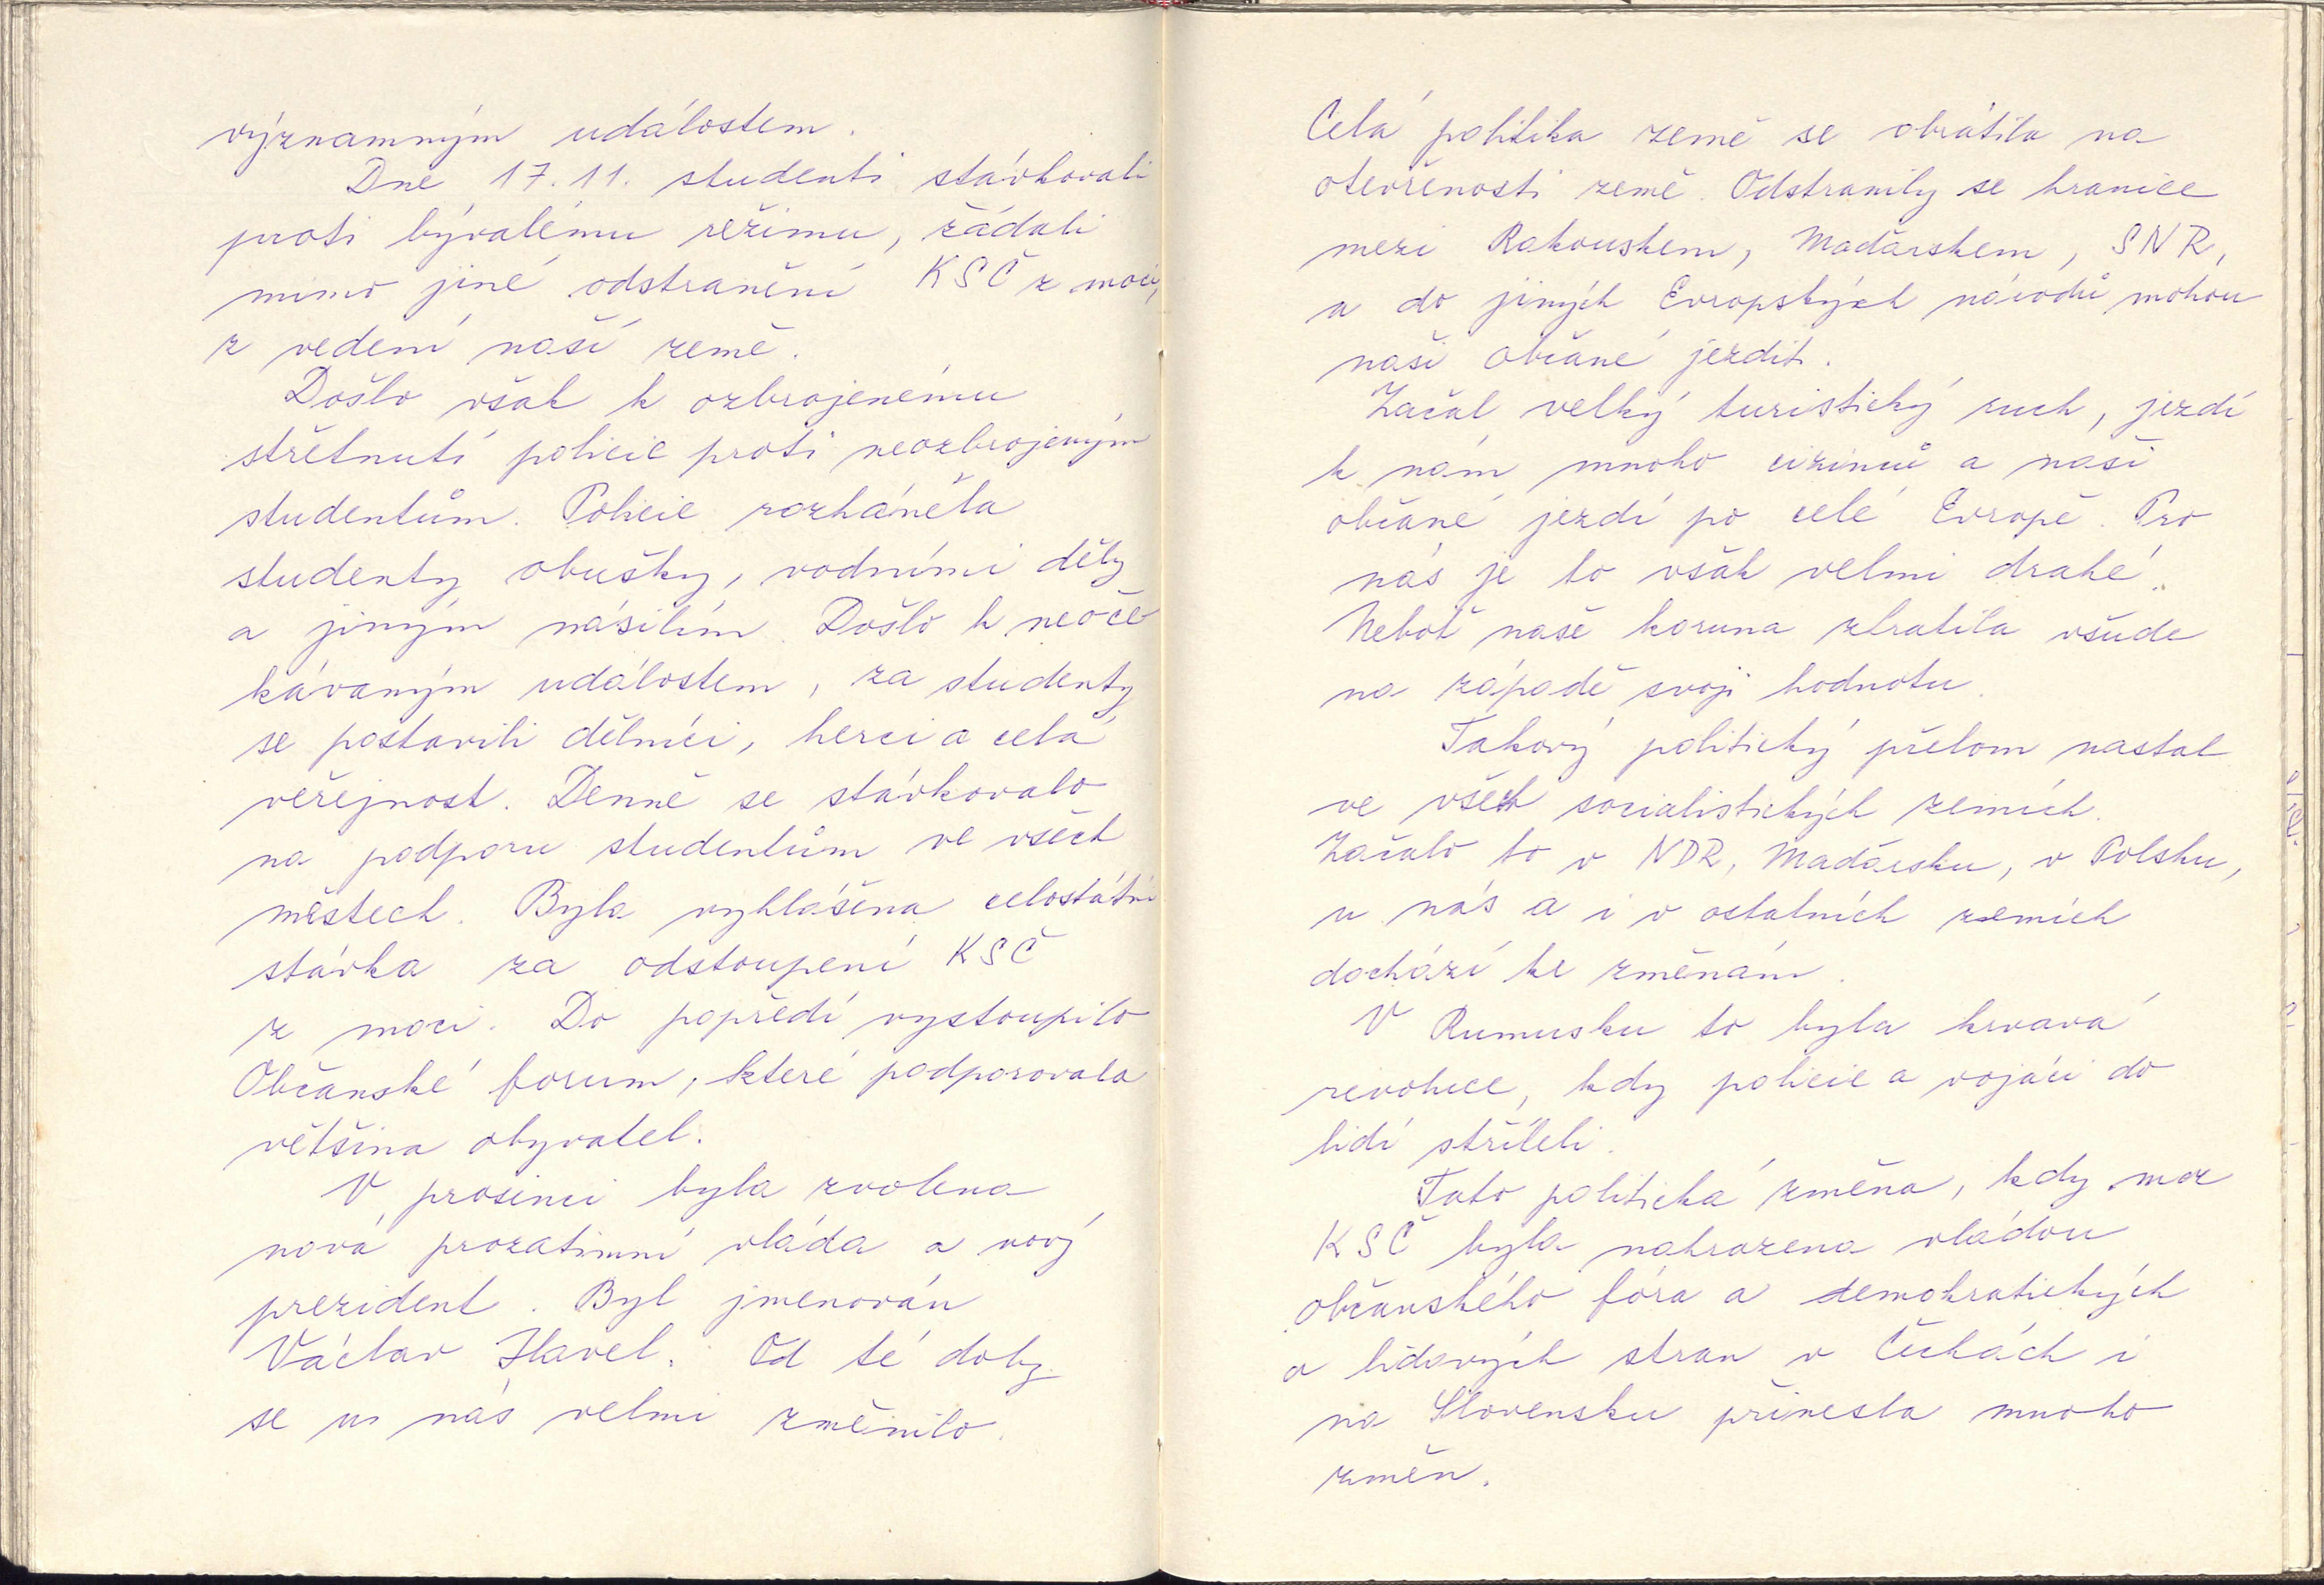 významným událostem.
Dne 17.11. studenti stávkovali
proti bývalému režimu, žádali
mimo jiné odstranění KSČ z moci,
z vedení naší země.
Došlo však k ozbrojenému
střetnutí policie proti neozbrojeným
studentům. Policie rozháněla
studenty obušky, vodními děly
a jiným násilím. Došlo k neoče
kávaným událostem, za studenty
se postavili dělníci, herci a celá
veřejnost. Denně se stávkovalo
na podporu studentům ve všech
městech. Byla vyhlášena celostátní
stávka za odstoupení KSČ
z moci. Do popředí vystoupilo
Občanské forum, které podporovala
většina obyvatel.
V prosinci byla zvolena
nová prozatimní vláda a nový
prezident. Byl jmenován
Václav Havel. Od té doby
se u nás velmi změnilo.
Celá politika země se obrátila na
otevřenosti země. Odstranily se hranice
mezi Rakouskem, Maďarskem, SNR,
a do jiných Evropských národů mohou
naši občané jezdit.
Začal velký turistický ruch, jezdí
k nám mnoho cizinců a naši
občané jezdí po celé Evropě. Pro
nás je to však velmi drahé.
Neboť naše koruna ztratila všude
na západě svoji hodnotu.
Takový politický přelom nastal
ve všech socialistických zemích.
Začalo to v NDR, Maďarsku, v Polsku,
u nás a i v ostatních zemích
dochází ke změnám.
V Rumusku to byla krvavá
revoluce, kdy policie a vojáci do
lidí stříleli.
Tato politická změna, kdy moc
KSČ byla nahrazena vládou
občanského fóra a demokratických
a lidových stran v Čechách i
na Slovensku přinesla mnoho
změn.